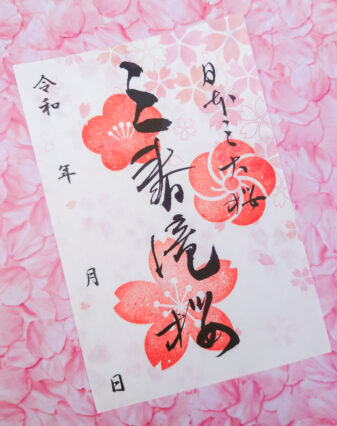 日本三大桜
三春滝桜
令和 年 月 日